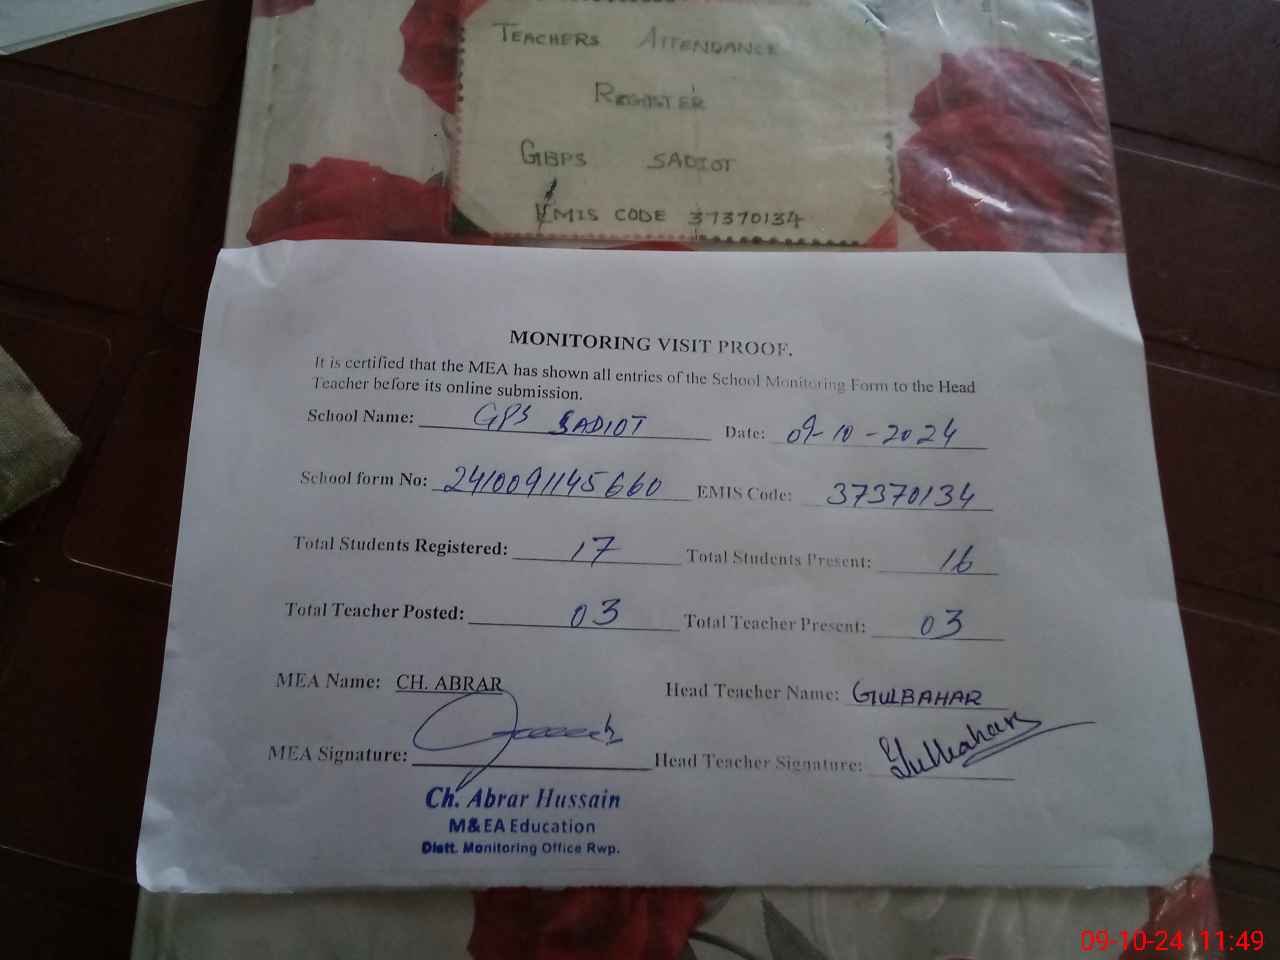 TEACHERS ATTENDANCE
REGISTER
GBPS SADIOT
EMIS CODE 37370134
MONITORING VISIT PROOF.
It is certified that the MEA has shown all entries of the School Monitoring Form to the Head
Teacher before its online submission.
School Name: GPS SADIOT Date: 09-10-2024
School form No: 2410091145660 EMIS Code: 37370134
Total Students Registered: 17 Total Students Present: 16
Total Teacher Posted: 03 Total Teacher Present: 03
MEA Name: CH. ABRAR Head Teacher Name: GULBAHAR
MEA Signature: Head Teacher Signature: Gulbahar
Ch. Abrar Hussain
M&EA Education
Distt. Monitoring Office Rwp.
09-10-24 11:49